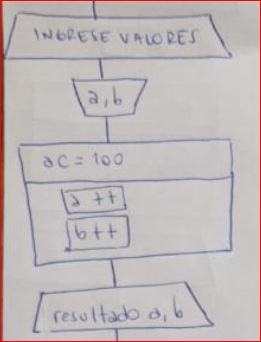 INGRESE VALORES
a,b
ac = 100
a ++
b ++
resultado a, b